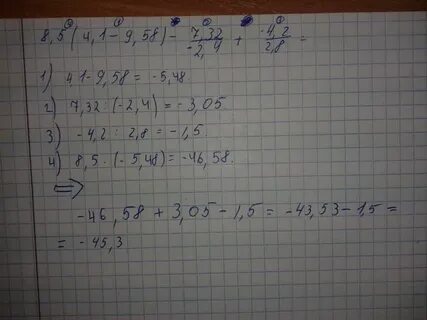 8,5(4,1-9,58)- 7,32/-2,4 + -4,2/2,8 =
1) 4,1-9,58 = -5,48
2) 7,32 : (-2,4) = -3,05
3) -4,2 : 2,8 = -1,5.
4) 8,5 · (-5,48) = -46,58.
⇒
-46,58 + 3,05 - 1,5 = -43,53 - 1,5 =
= -45,3